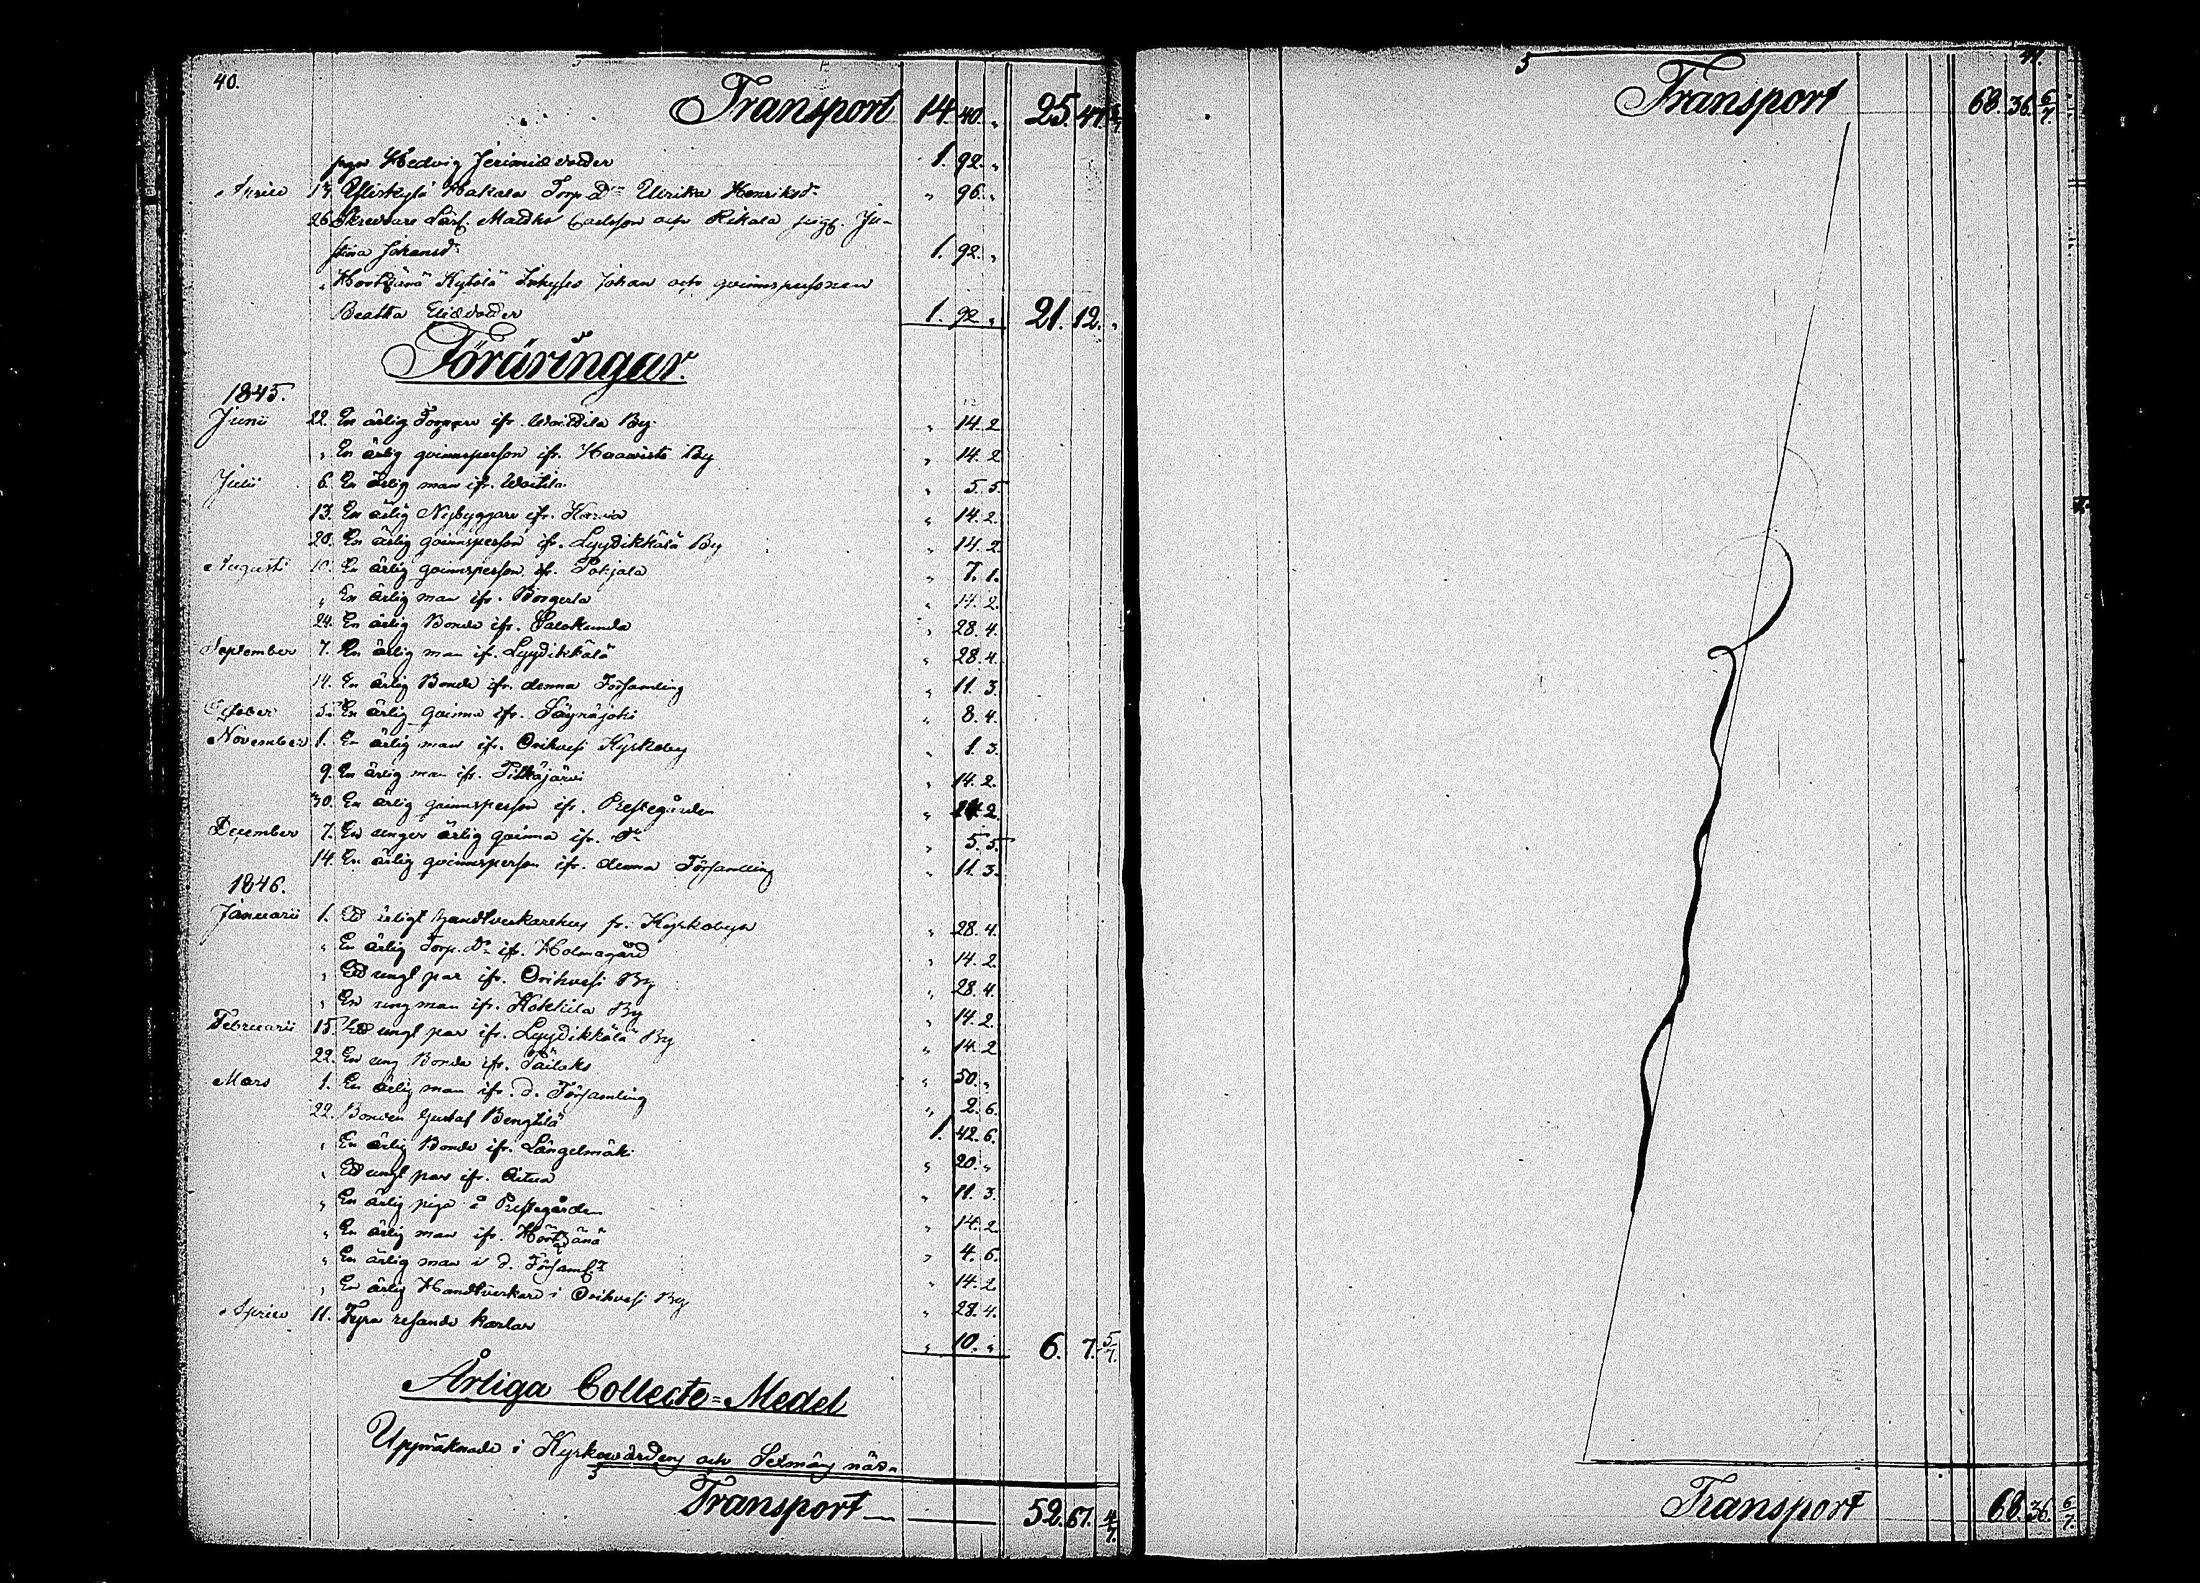 40.
Transport 14. 40. „ 25. 47. 6/7.
Hedvig Jeremiædotter 1. 92. „
April 13. Yliskylä Hakala Torp. Dr Ulrika Henriksdr „ 96. „
26. Carlsson och Rikala pig. Ju-
stina Johansdr 1. 92. „
„ Kytölä Inhyses Johan och qvinnspersonen
Beatta Eliædotter 1. 92. „ 21. 12. „
Föräringar.
1845.
Junii 22. En ärlig Torpare ifr. Waitila By „ 14. 2.
„ En ärlig qvinnsperson ifr. Haavisto By „ 14. 2.
Julii 6. En ärlig man ifr. Waitila „ 5. 5.
13. En ärlig Nybyggare ifr. „ 14. 2.
20. En ärlig qvinnsperson ifr. Lyydikkälä By „ 14. 2.
Augusti 10. En ärlig qvinnsperson ifr. Pohjala „ 7. 1.
„ En ärlig man ifr. „ 14. 2.
24. En ärlig Bonde ifr. Salokunda „ 28. 4.
September 7. En ärlig man if. Lyydikkälä „ 28. 4.
14. En ärlig Bonde ifr. denna Församling „ 11. 3.
October 5. En ärlig qvinna ifr. Säynäjoki „ 8. 4.
November 1. En ärlig man ifr. Orihvesi Kyrkoby „ 1. 3.
9. En ärlig man ifr. Pitkäjärvi „ 14. 2.
30. En ärlig qvinnsperson ifr. Prestegården „ 14. 2.
December 7. En unger ärlig qvinna ifr. Do „ 5. 5.
14. En ärlig qvinnsperson ifr. denna Församling „ 11. 3.
1846.
Januarii 1. Ett ärligt handtverkarehus fr. Kyrkobyn „ 28. 4.
„ En ärlig Torp. Dr ifr. Holmagård „ 14. 2.
„ Ett ungt par ifr. Orihvesi By „ 28. 4.
„ En ung man ifr. Kokkila By „ 14. 2.
Februarii 15. Ett ungt par ifr. Lyydikkälä By „ 14. 2.
22. En ung Bonde ifr. Päilaks „ 50. „
Mars 1. En ärlig man ifr. d. Församling „ 2. 6.
22. Bonden Gustaf Bengtilä 1. 42. 6.
„ En ärlig Bonde ifr. Längelmäki „ 20. „
„ Ett ungt par ifr. Onnistua „ 11. 3.
„ En ärlig piga å Prestegården „ 14. 2.
„ En ärlig man ifr. „ 4. 6.
„ En ärlig man i d. Församl. „ 14. 2
„ En ärlig Handtverkare i Orihvesi By „ 28. 4.
April 11. Fyra resande karlar „ 10. „ 6. 7. 5/7.
Årliga Collecte=Medel
Uppräknade i Kyrkovärdens och Sexmäns när-
Transport — 52. 67. 4/7.
41.
Transport 68. 36. 6/7.
Transport 68. 36. 6/7.